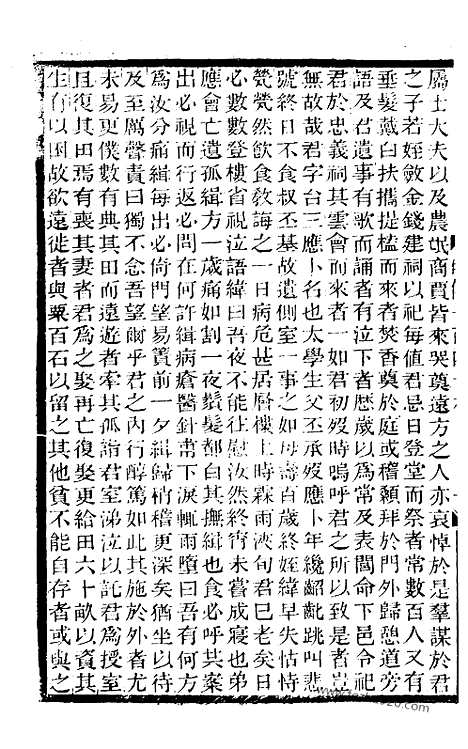 屬士大夫以及農氓商賈皆來哭奠遠方之人亦哀悼於是羣謀於君
之子若姪斂金錢建祠以祀每值君忌日登堂而祭者常數百人又有
垂髮戴白扶攜提榼而來者焚香奠於庭或稽顙拜於門外歸憩道旁
語及君遺事有歌而誦者有泣下者歷歲以爲常及表閭命下邑令祀
君於忠義祠其雲會而來者一如君初歿時嗚呼君之所以致是者豈
無故哉君字台三應卜名也太學生父丕承歿應卜年纔齠齔跳叫悲
號終日不食叔丕基故遺側室一事之如母壽百歲終姪緯早失怙恃
煢煢然飲食敎誨之一日病危甚居層樓上時霖雨浹旬君已老矣日
必數數登樓省視泣語緯曰吾夜不能往慰汝然終宵未嘗成寢也弟
應會亡遺孤緝方一歲痛如割一夜鬚髮都白其撫緝也食必呼其案
出必視而行返必問在何許緝病瘡醫針當下淚輒雨墮曰吾有何方
爲汝分痛緝每出必倚門望易簀前一夕緝歸稍稍更深矣猶坐以待
及至厲聲責曰獨不念吾望爾乎君之內行醇篤如此其施於外者尤
未易更僕數有典其田而遠遊者牽其孤詣君室涕泣以託君爲授室
且復其田焉有喪其妻者君爲之娶再亡復娶更給田六十畝以資其
生有以困故欲遠徙者與粟百石以留之其他貧不能自存者或與之